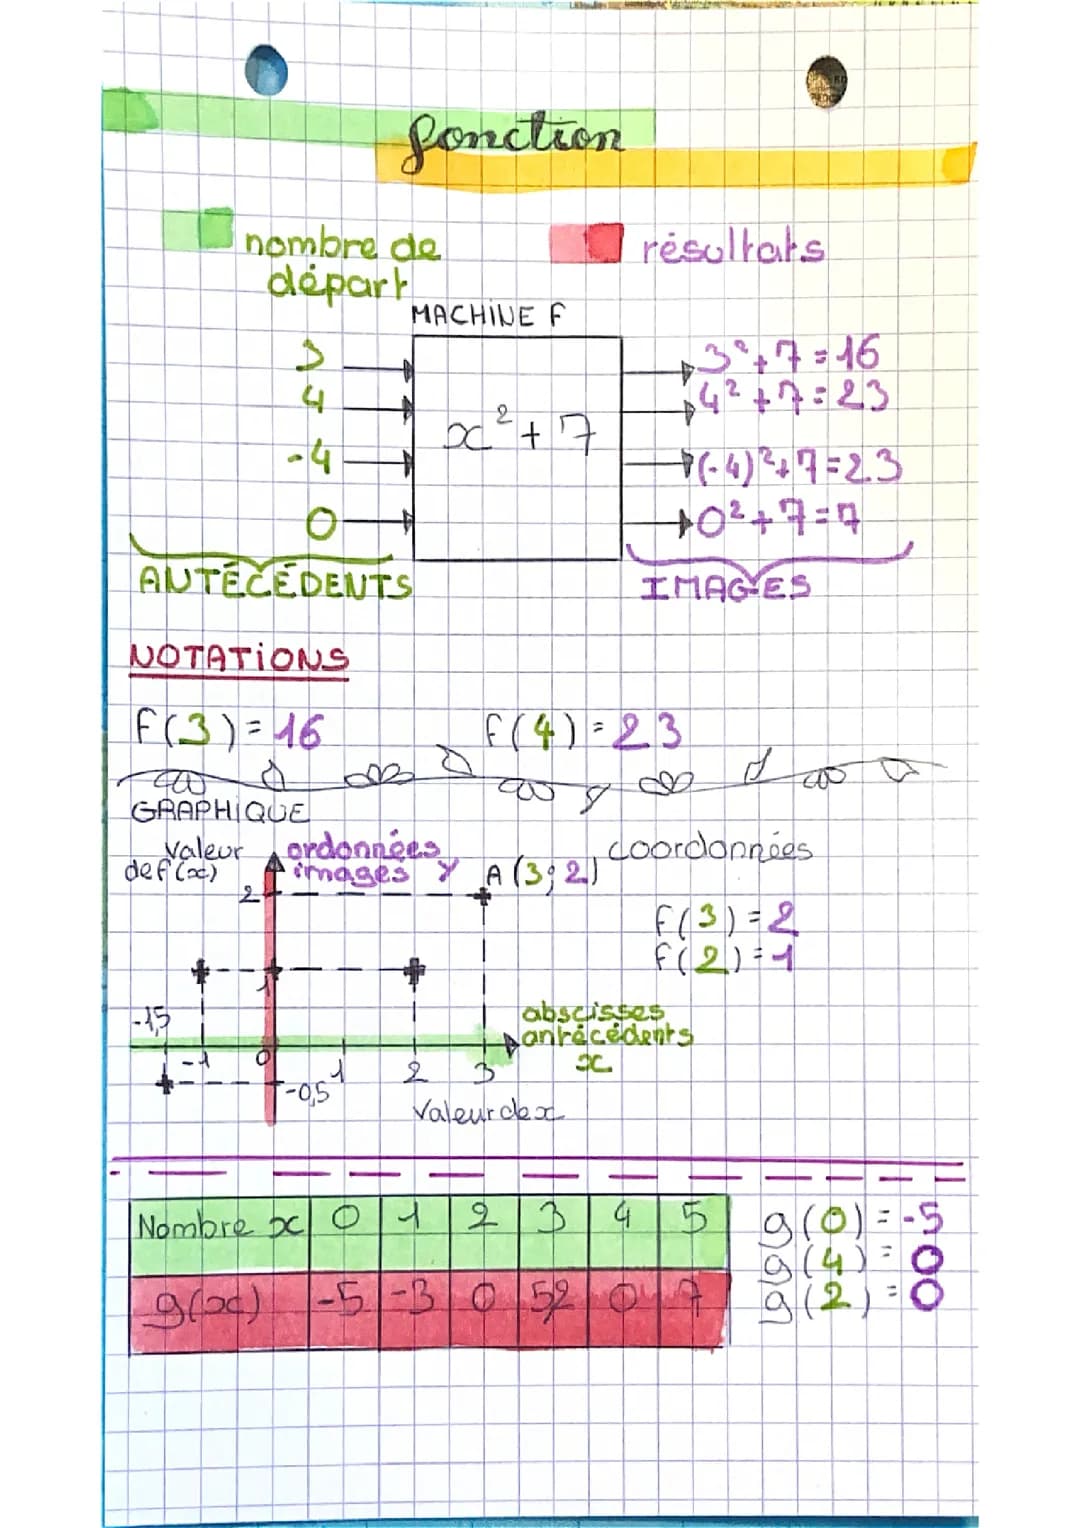 fonction
nombre de
départ
résultats
MACHINE F
3
4
-4
0
x² + 7
3² + 7 = 16
4² + 7 = 23
(-4)² + 7 = 23
0² + 7 = 7
ANTÉCÉDENTS
IMAGES
NOTATIONS
F(3) = 16
F(4) = 23
GRAPHIQUE
Valeur
de f(x)
ordonnées
images y
A (3; 2)
coordonnées
2
F(3) = 2
F(2) = 1
1
-1,5
abscisses
antécédents
x
-1
0
1
2
3
-0,5
Valeur de x
Nombre x 0 1 2 3 4 5
g(x) -5 -3 0 52 0 7
g(0) = -5
g(4) = 0
g(2) = 0